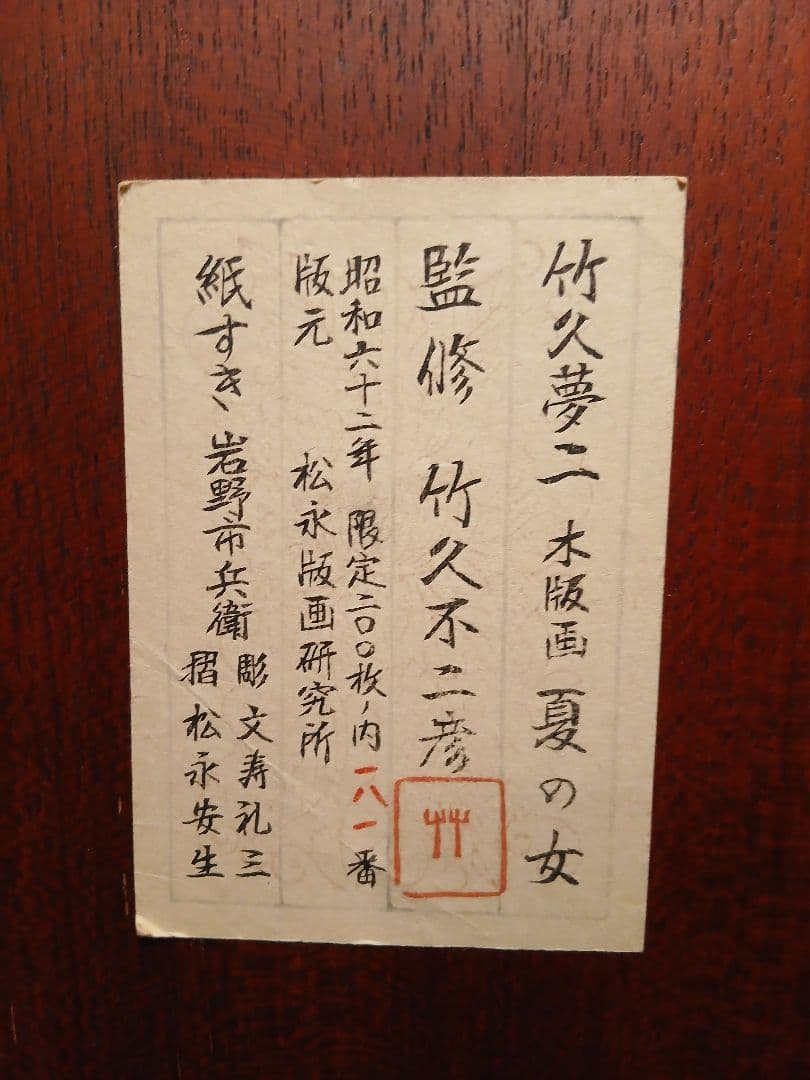 竹久夢二 木版画 夏の女
監修 竹久不二彦
昭和六十二年 限定二〇〇枚ノ内 一八一番
版元 松永版画研究所
紙すき 岩野市兵衛
彫 文寿礼三
摺 松永安生